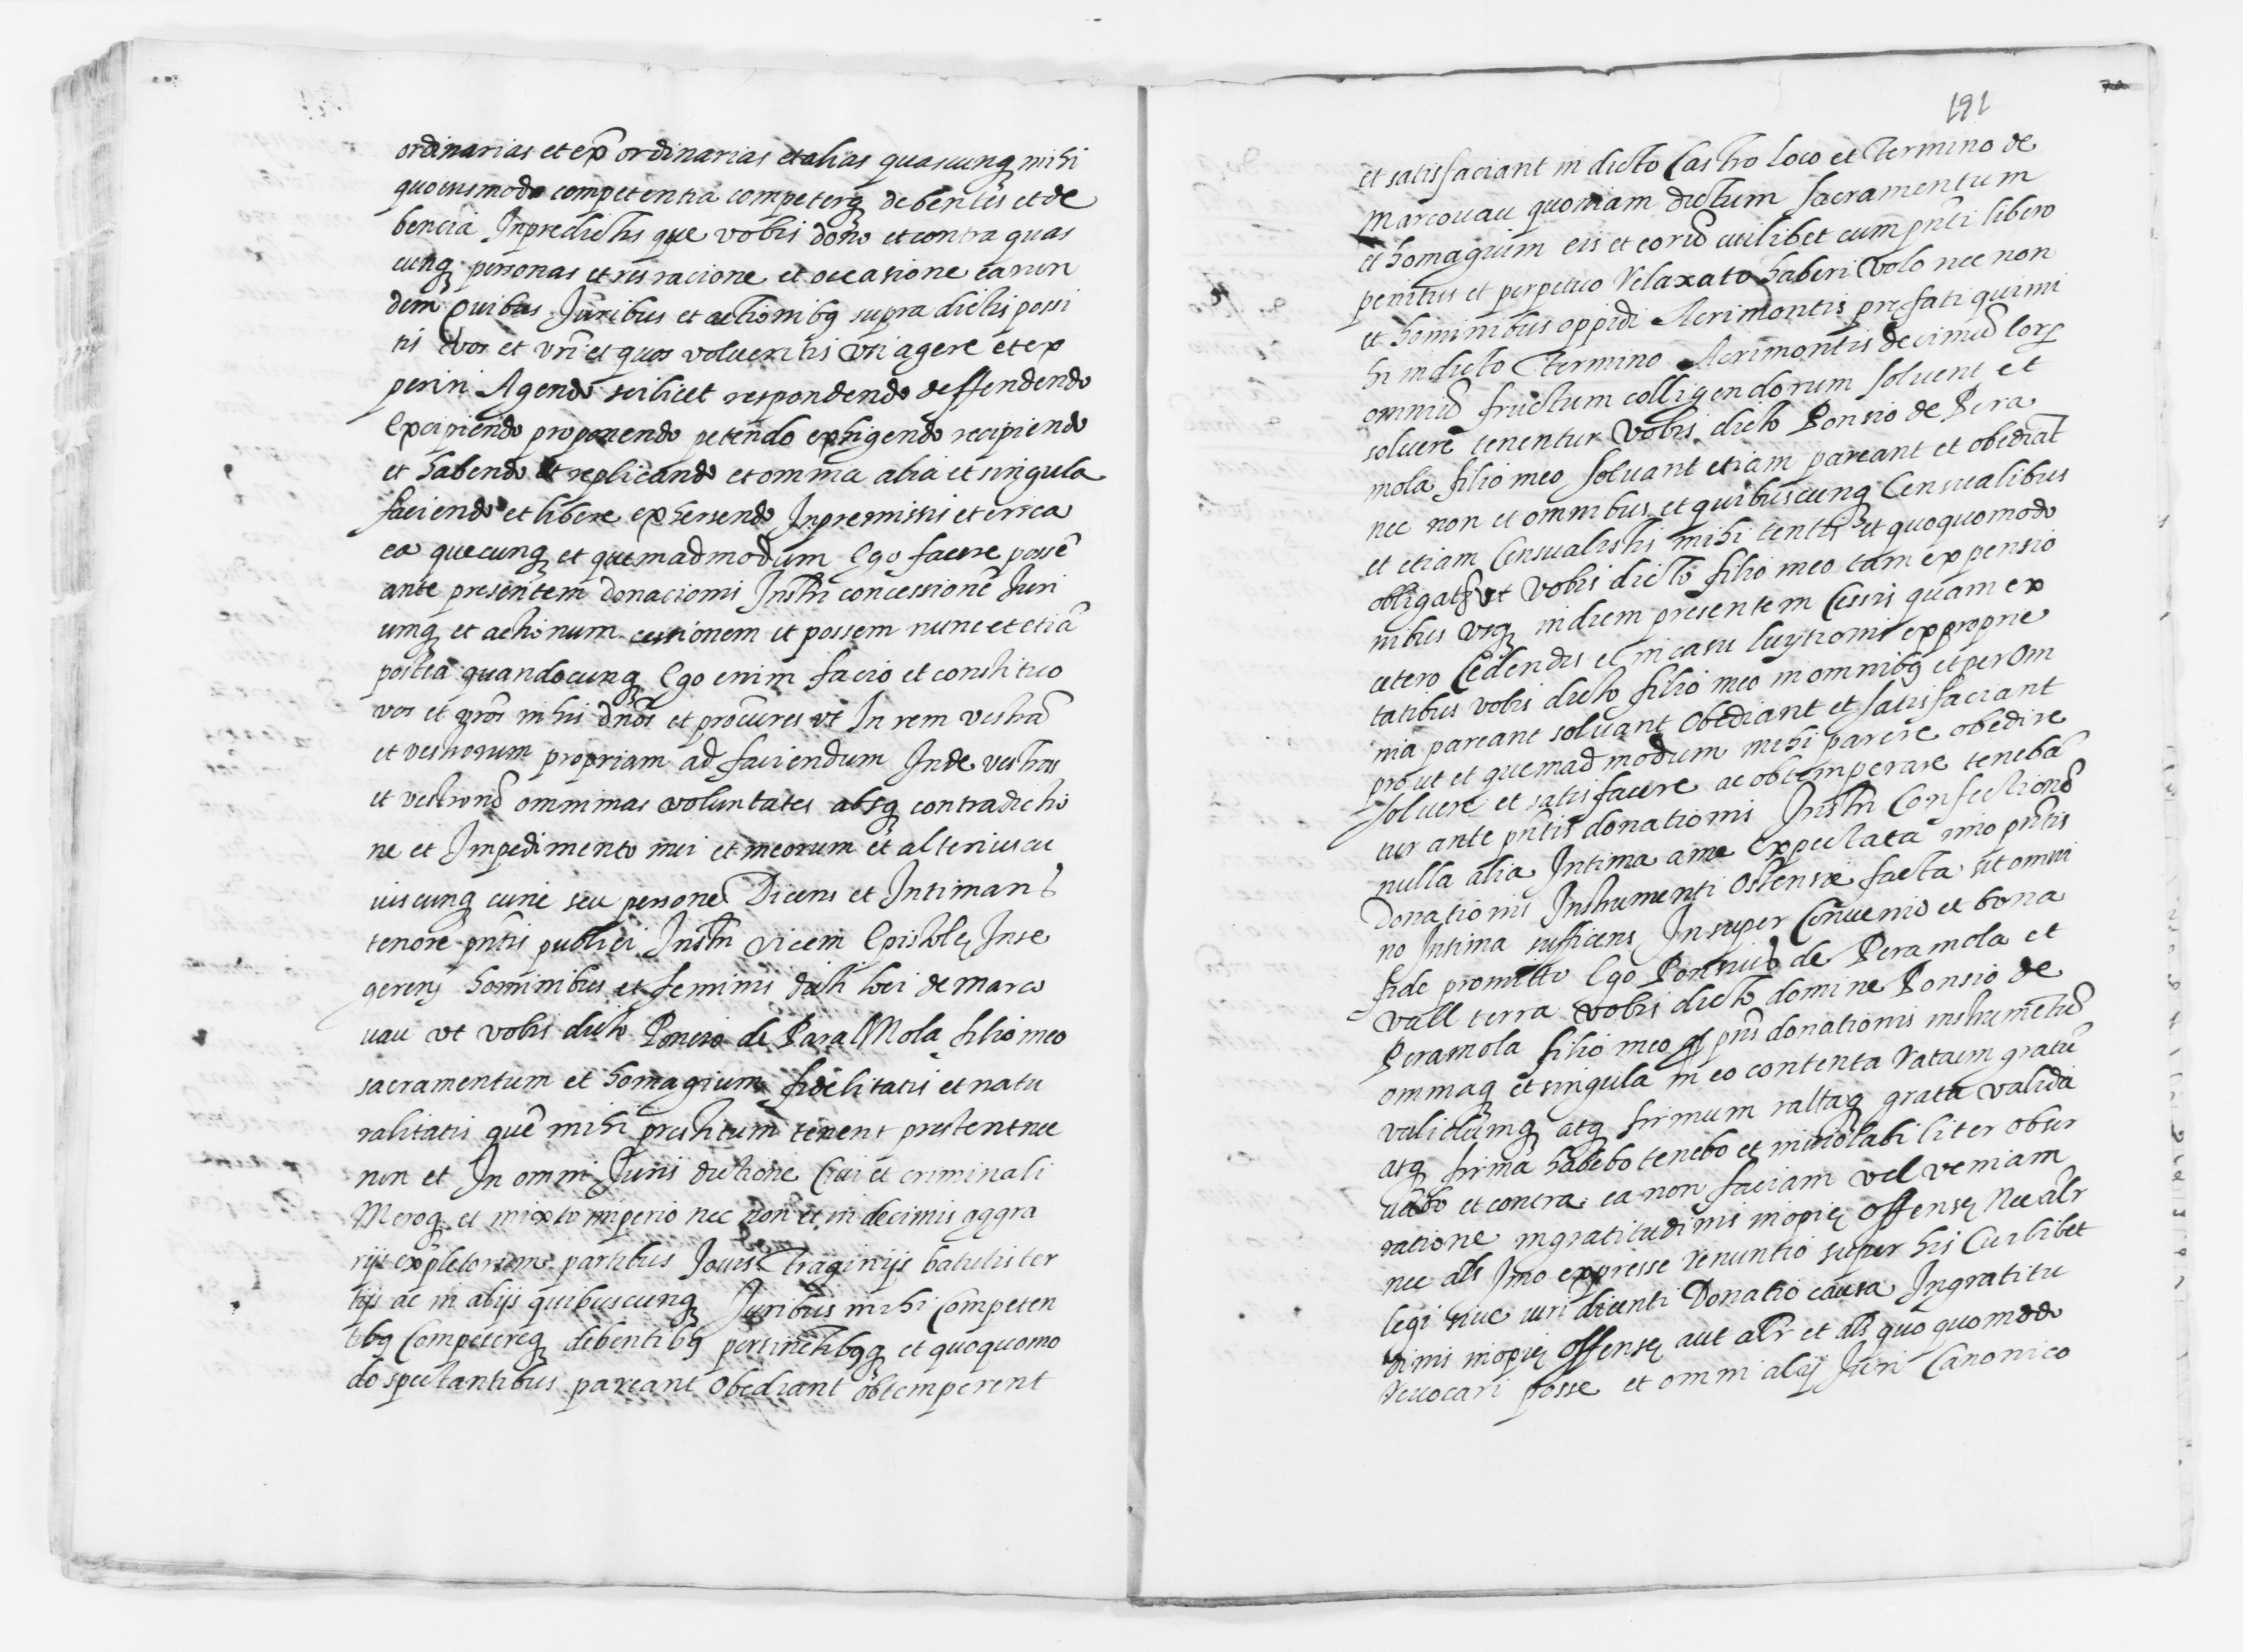 ordinarias et exp ordinarias et alias quascunq mihi
quovismodo competentia competerq debentes et de
bencia Inpredictis que vobis dono et contra quas
cunq personas et res racione et occasione earun
dem Quibus Juribus et actionibq supra dictis possi
tis vos et vri et quos volueritis uti agere et ex
periri Agendo scilicet respondendo deffendendo
Excipiendo proponendo petendo exhigendo recipiendo
et habendo et replicando et omnia alia et singula
faciendo et libere exhersendo Inpremissis et circa
ea quecunq et quemadmodum Ego facere possē
ante presentem donacionis Instri concessionē Juri
umq et actionum cessionem ut possem nunc et etiā
postea quandocunq Ego enim facio et constituo
vos et vros in his dnōs et procures ut In rem vestrā
et vestrorum propriam ad faciendum Inde vestras
et vestrorū omnimas voluntates absq contradictio
ne et Impedimento mei et meorum et alterius cu
iuscunq curie seu persone Dicens et Intimans
tenore pntis publici Instri vicem Epistole Inse
gerens hominibus et feminis dicti loci de marco
vau ut vobis dicto Poncio de Para Mola filio meo
sacramentum et homagium fidelitatis et natu
ralitatis quē mihi prestitum tenent prestent nec
non et In omni Juris dictione Civi et criminali
Meroq et mixto imperio nec non et in decimis aggra
rijs expletorum partibus Jovis Traginijs batulis ter
tijs ac in alijs quibuscunq Juribus mihi Competen
tibq Competereq debentibq pertinētibqq et quoquomo
do spectantibus pareant Obediant obtemperent
191
et satisfaciant in dicto Castro loco et Termino de
Marcovau quoniam dictum sacramentum
et homagium eis et eorū cuilibet cum pnti libero
penitus et perpetuo Relaxato haberi volo nec non
et hominibus oppidi Acrimontis prefati qui mi
hi in dicto Termino Acrimontis decimā Corp
omniū fructum colligendorum solvent et
solvere tenentur Vobis dicto Ponsio de Pera
mola filio meo solvant etiam pareant et obediāt
nec non et omnibus et quibuscunq Censualibus
et etiam Censualistis mihi tentis et quoquomodo
obligatis ut vobis dicto filio meo tam ex pensio
nibus usq indiem presentem Cessis quam ex
cetero Cedendis et in casu luytionis exproprie
tatibus vobis dicto filio meo in omnibq et per Om
nia pareant solvant Obediant et satisfaciant
prout et quemadmodum mihi parere obedire
solvere et satisfacere ac obtemperare tenebā
tur ante pntis donationis Instri Confectionē
nulla alia Intima a me Expectata imo pntis
Donationis Instrumenti Ostensie facta sit omni
no Intima sufficens Insuper Convenio et bona
fide promitto Ego Ponsius de Peramola et
vall terra vobis dicto domine Ponsio de
Peramola filio meo q pns donationis instrumētū
omniaq et singula in eo contenta Ratum gratū
validumq atq firmum rattaq grata valida
atq firma habebo tenebo et inviolabiliter obser
vabo et contra ea non faciam vel veniam
ratione ingratitudinis inopie offense Nec alr
nec als Imo expresse renuntio super his Cuilibet
legi sive iuri dicenti Donatio causa Ingratitu
dinis inopie Offense aut alr et als quoquomodo
Revocari posse et omni alij Juri Canonico